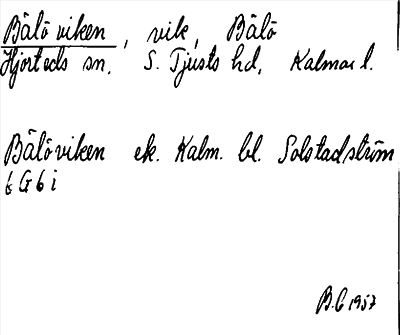 Bälöviken, vik, Bälö
Hjorteds sn. S. Tjusts hd, Kalmar l.
Bälöviken ek. Kalm. bl. Solstadström
6 G 6 i
B.C 1957